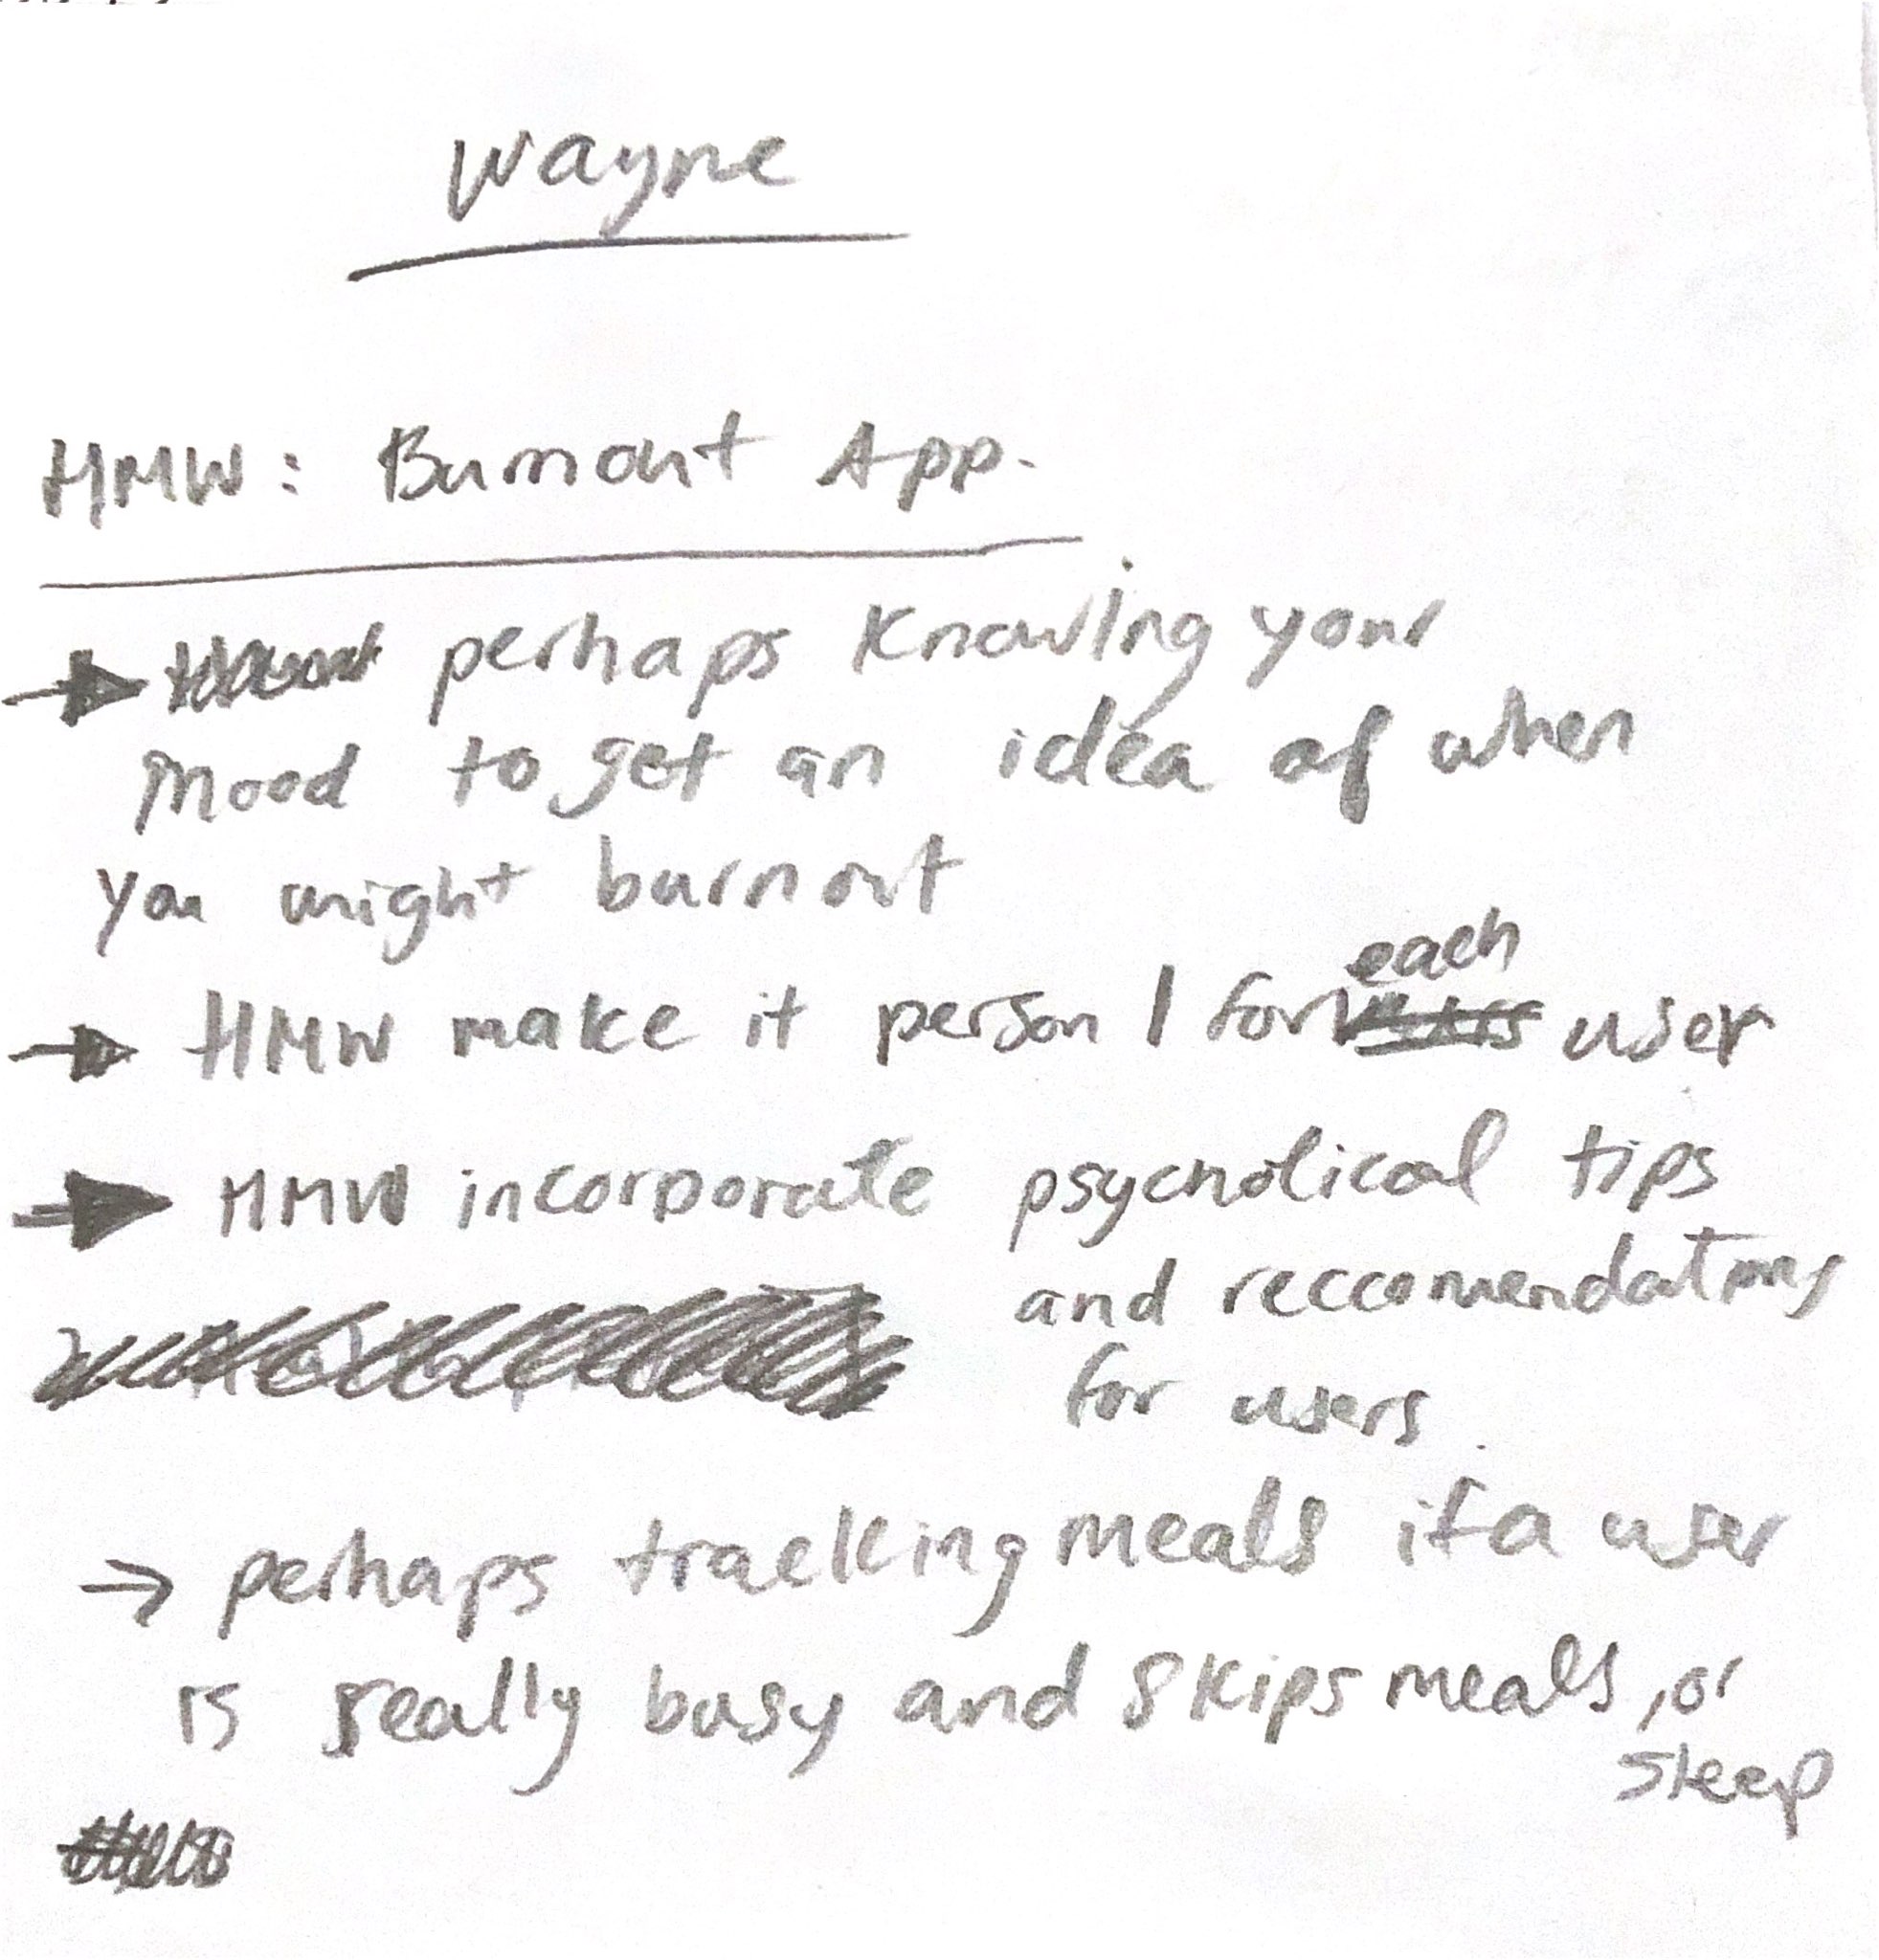 Wayne
HMW: Burnout App.
perhaps Knowing your
Mood to get an idea of when
you might burnout
each
HMW make it person l for user
HMW incorporate psycholical tips
and reccomendations
for users.
→ perhaps tracking meals if a user
is really busy and skips meals, or
sleep